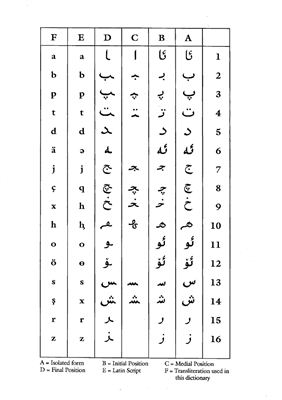 F E D C B A
a a ـا ا ئا ئا 1
b b ـب ـبـ بـ ب 2
p p ـپ ـپـ پـ پ 3
t t ـت ـتـ تـ ت 4
d d ـد د د 5
ä ə ـە ئە ئە 6
j j ـج ـجـ جـ ج 7
ç q ـچ ـچـ چـ چ 8
x h ـخ ـخـ خـ خ 9
h ⱨ ـھ ـھـ ھـ ھ 10
o o ـو ئو ئو 11
ö ɵ ـۆ ئۆ ئۆ 12
s s ـس ـسـ سـ س 13
ş x ـش ـشـ شـ ش 14
r r ـر ر ر 15
z z ـز ز ز 16
A = Isolated form B = Initial Position C = Medial Position
D = Final Position E = Latin Script F = Transliteration used in
this dictionary